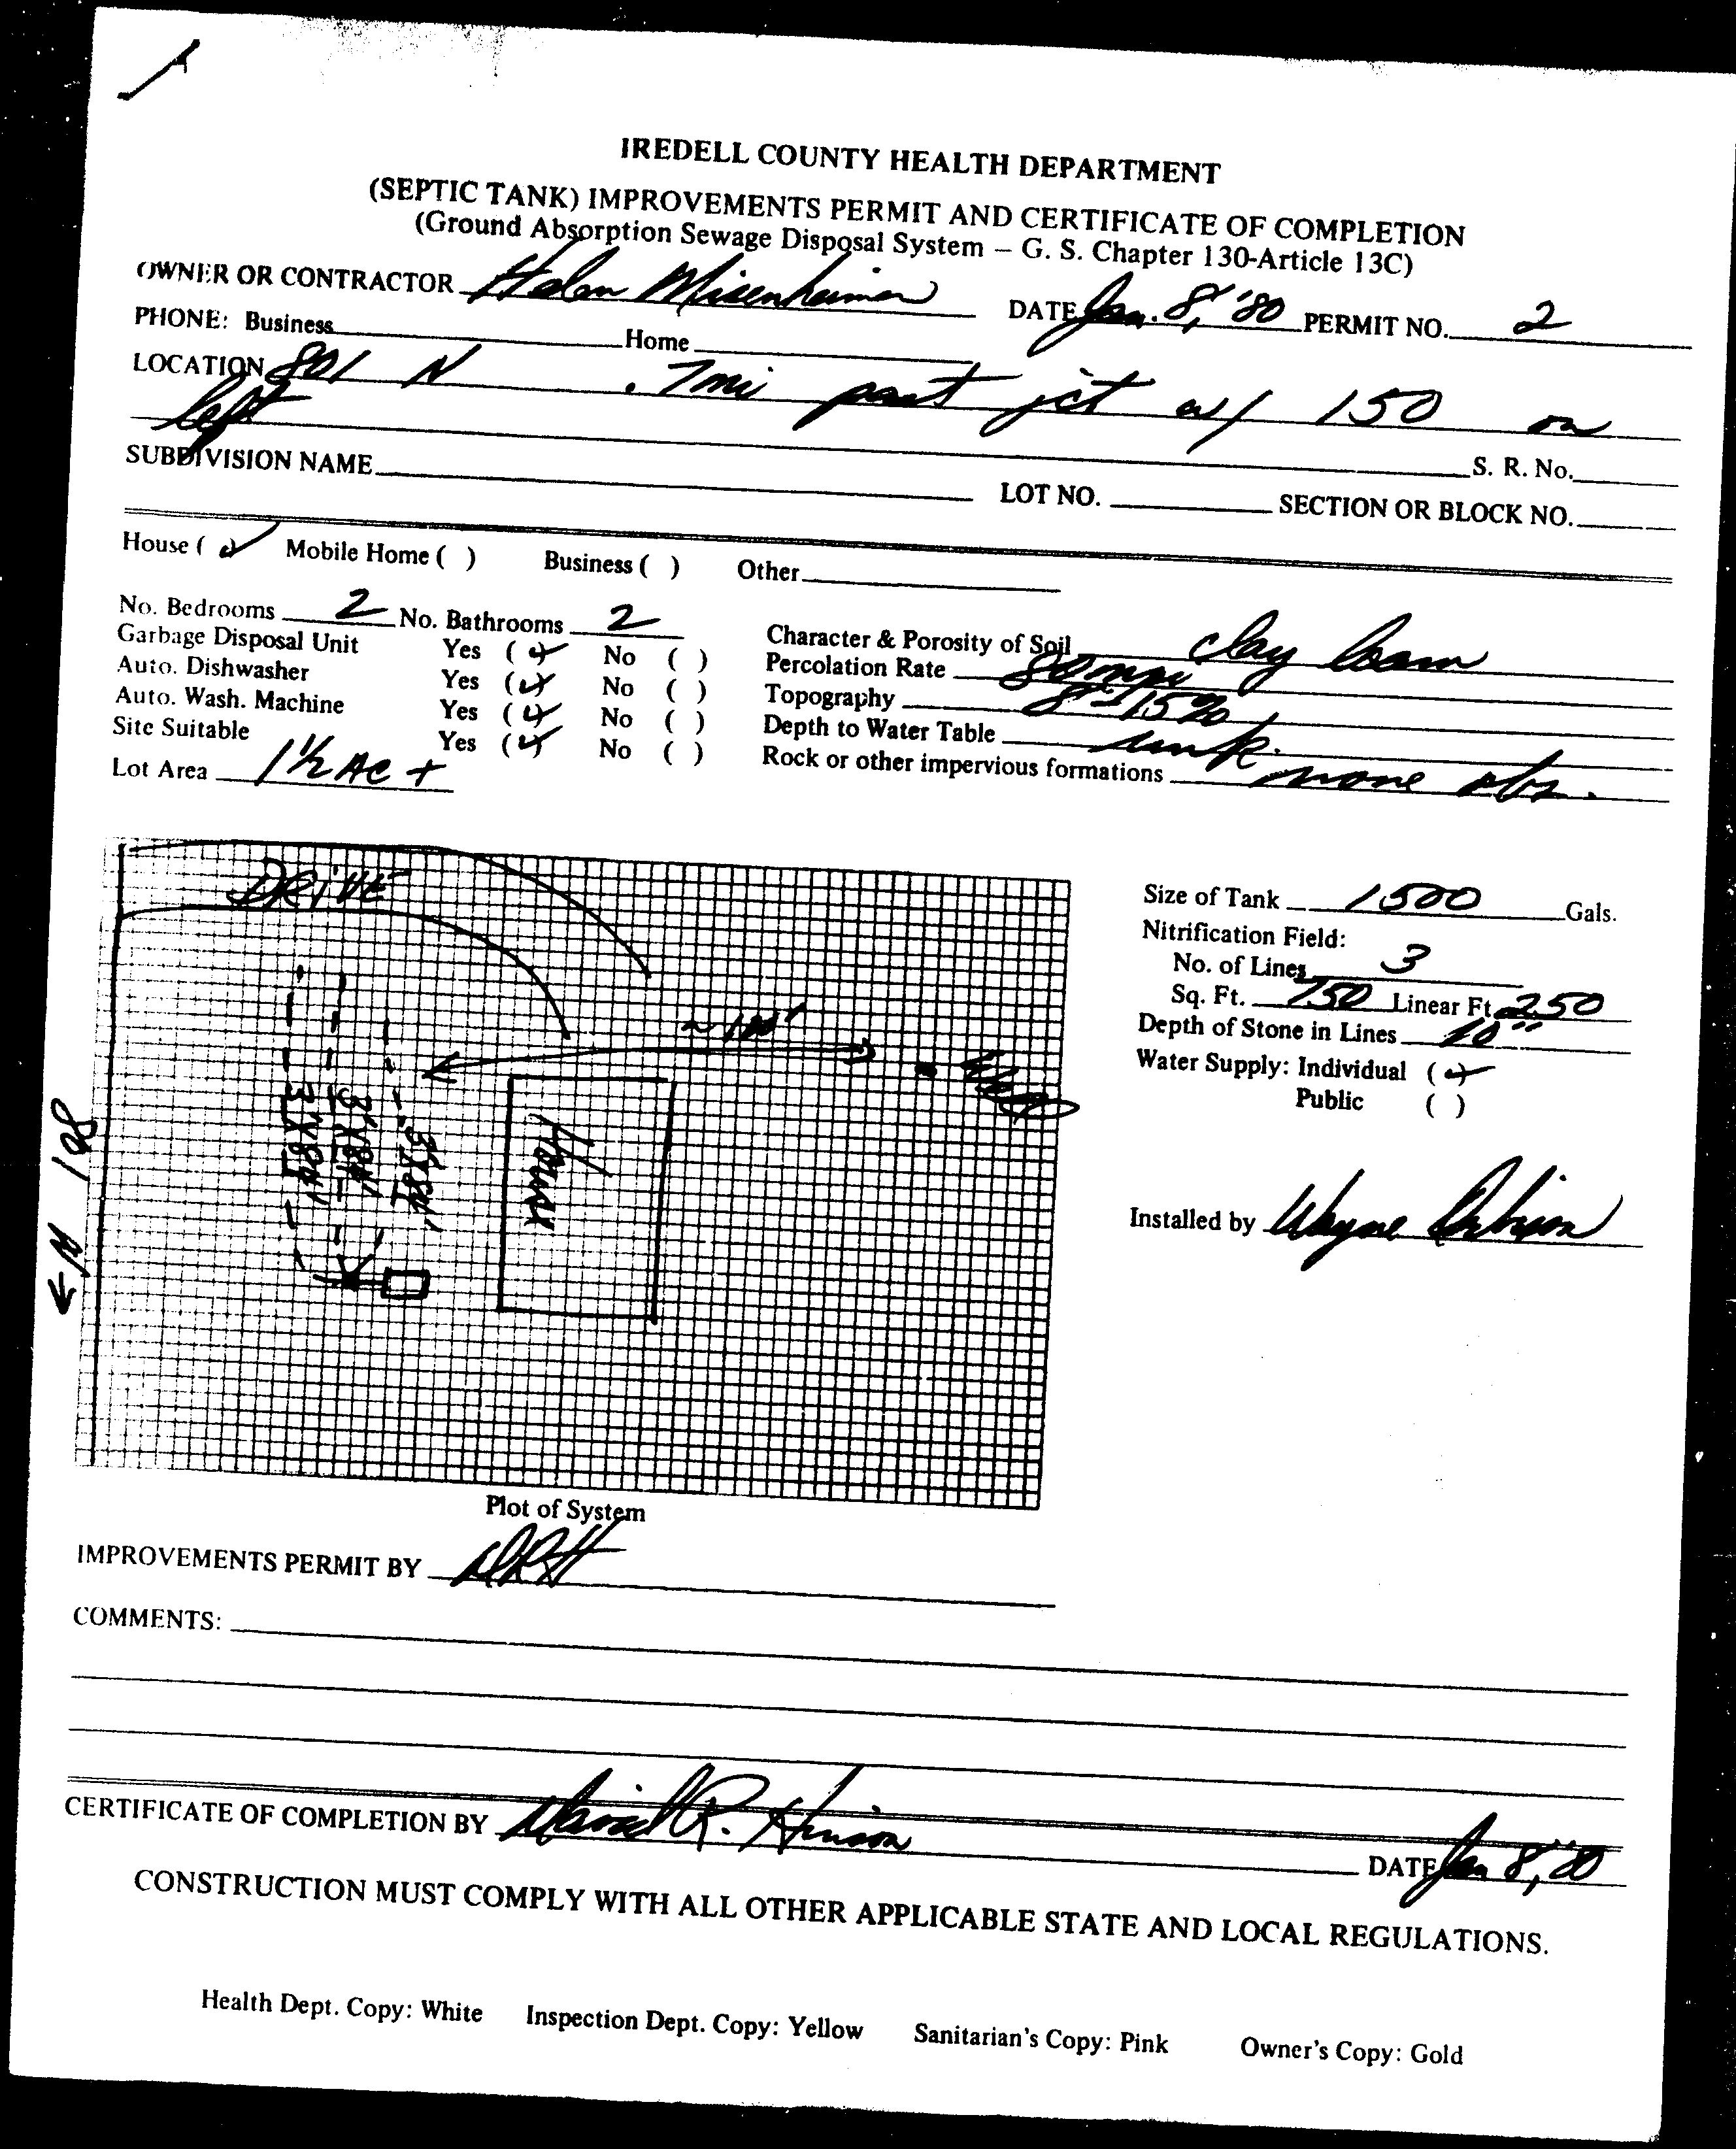 IREDELL COUNTY HEALTH DEPARTMENT
(SEPTIC TANK) IMPROVEMENTS PERMIT AND CERTIFICATE OF COMPLETION
(Ground Absorption Sewage Disposal System – G. S. Chapter 130-Article 13C)
OWNER OR CONTRACTOR Helen Misenheimer DATE Jan. 8, '80 PERMIT NO. 2
PHONE: Business Home
LOCATION 801 N .7mi past jct w/ 150 on
left
S. R. No.
SUBDIVISION NAME LOT NO. SECTION OR BLOCK NO.
House ( ✓) Mobile Home ( ) Business ( ) Other
No. Bedrooms 2 No. Bathrooms 2
Garbage Disposal Unit Yes (✓) No ( )
Auto. Dishwasher Yes (✓) No ( )
Auto. Wash. Machine Yes (✓) No ( )
Site Suitable Yes (✓) No ( )
Lot Area 1½ AC +
Character & Porosity of Soil clay loam
Percolation Rate 80 mpi
Topography 8-15%
Depth to Water Table unk.
Rock or other impervious formations none obs.
DRIVE
~ 100'
Well
3'X84'
3'X84'
3'X84'
House
← N 801
Size of Tank 1500 Gals.
Nitrification Field:
No. of Lines 3
Sq. Ft. 750 Linear Ft 250
Depth of Stone in Lines 10"
Water Supply: Individual (✓)
Public ( )
Installed by Wayne
Plot of System
IMPROVEMENTS PERMIT BY DRH
COMMENTS:
CERTIFICATE OF COMPLETION BY David R. Hinson
DATE Jan 8, '80
CONSTRUCTION MUST COMPLY WITH ALL OTHER APPLICABLE STATE AND LOCAL REGULATIONS.
Health Dept. Copy: White Inspection Dept. Copy: Yellow Sanitarian's Copy: Pink Owner's Copy: Gold